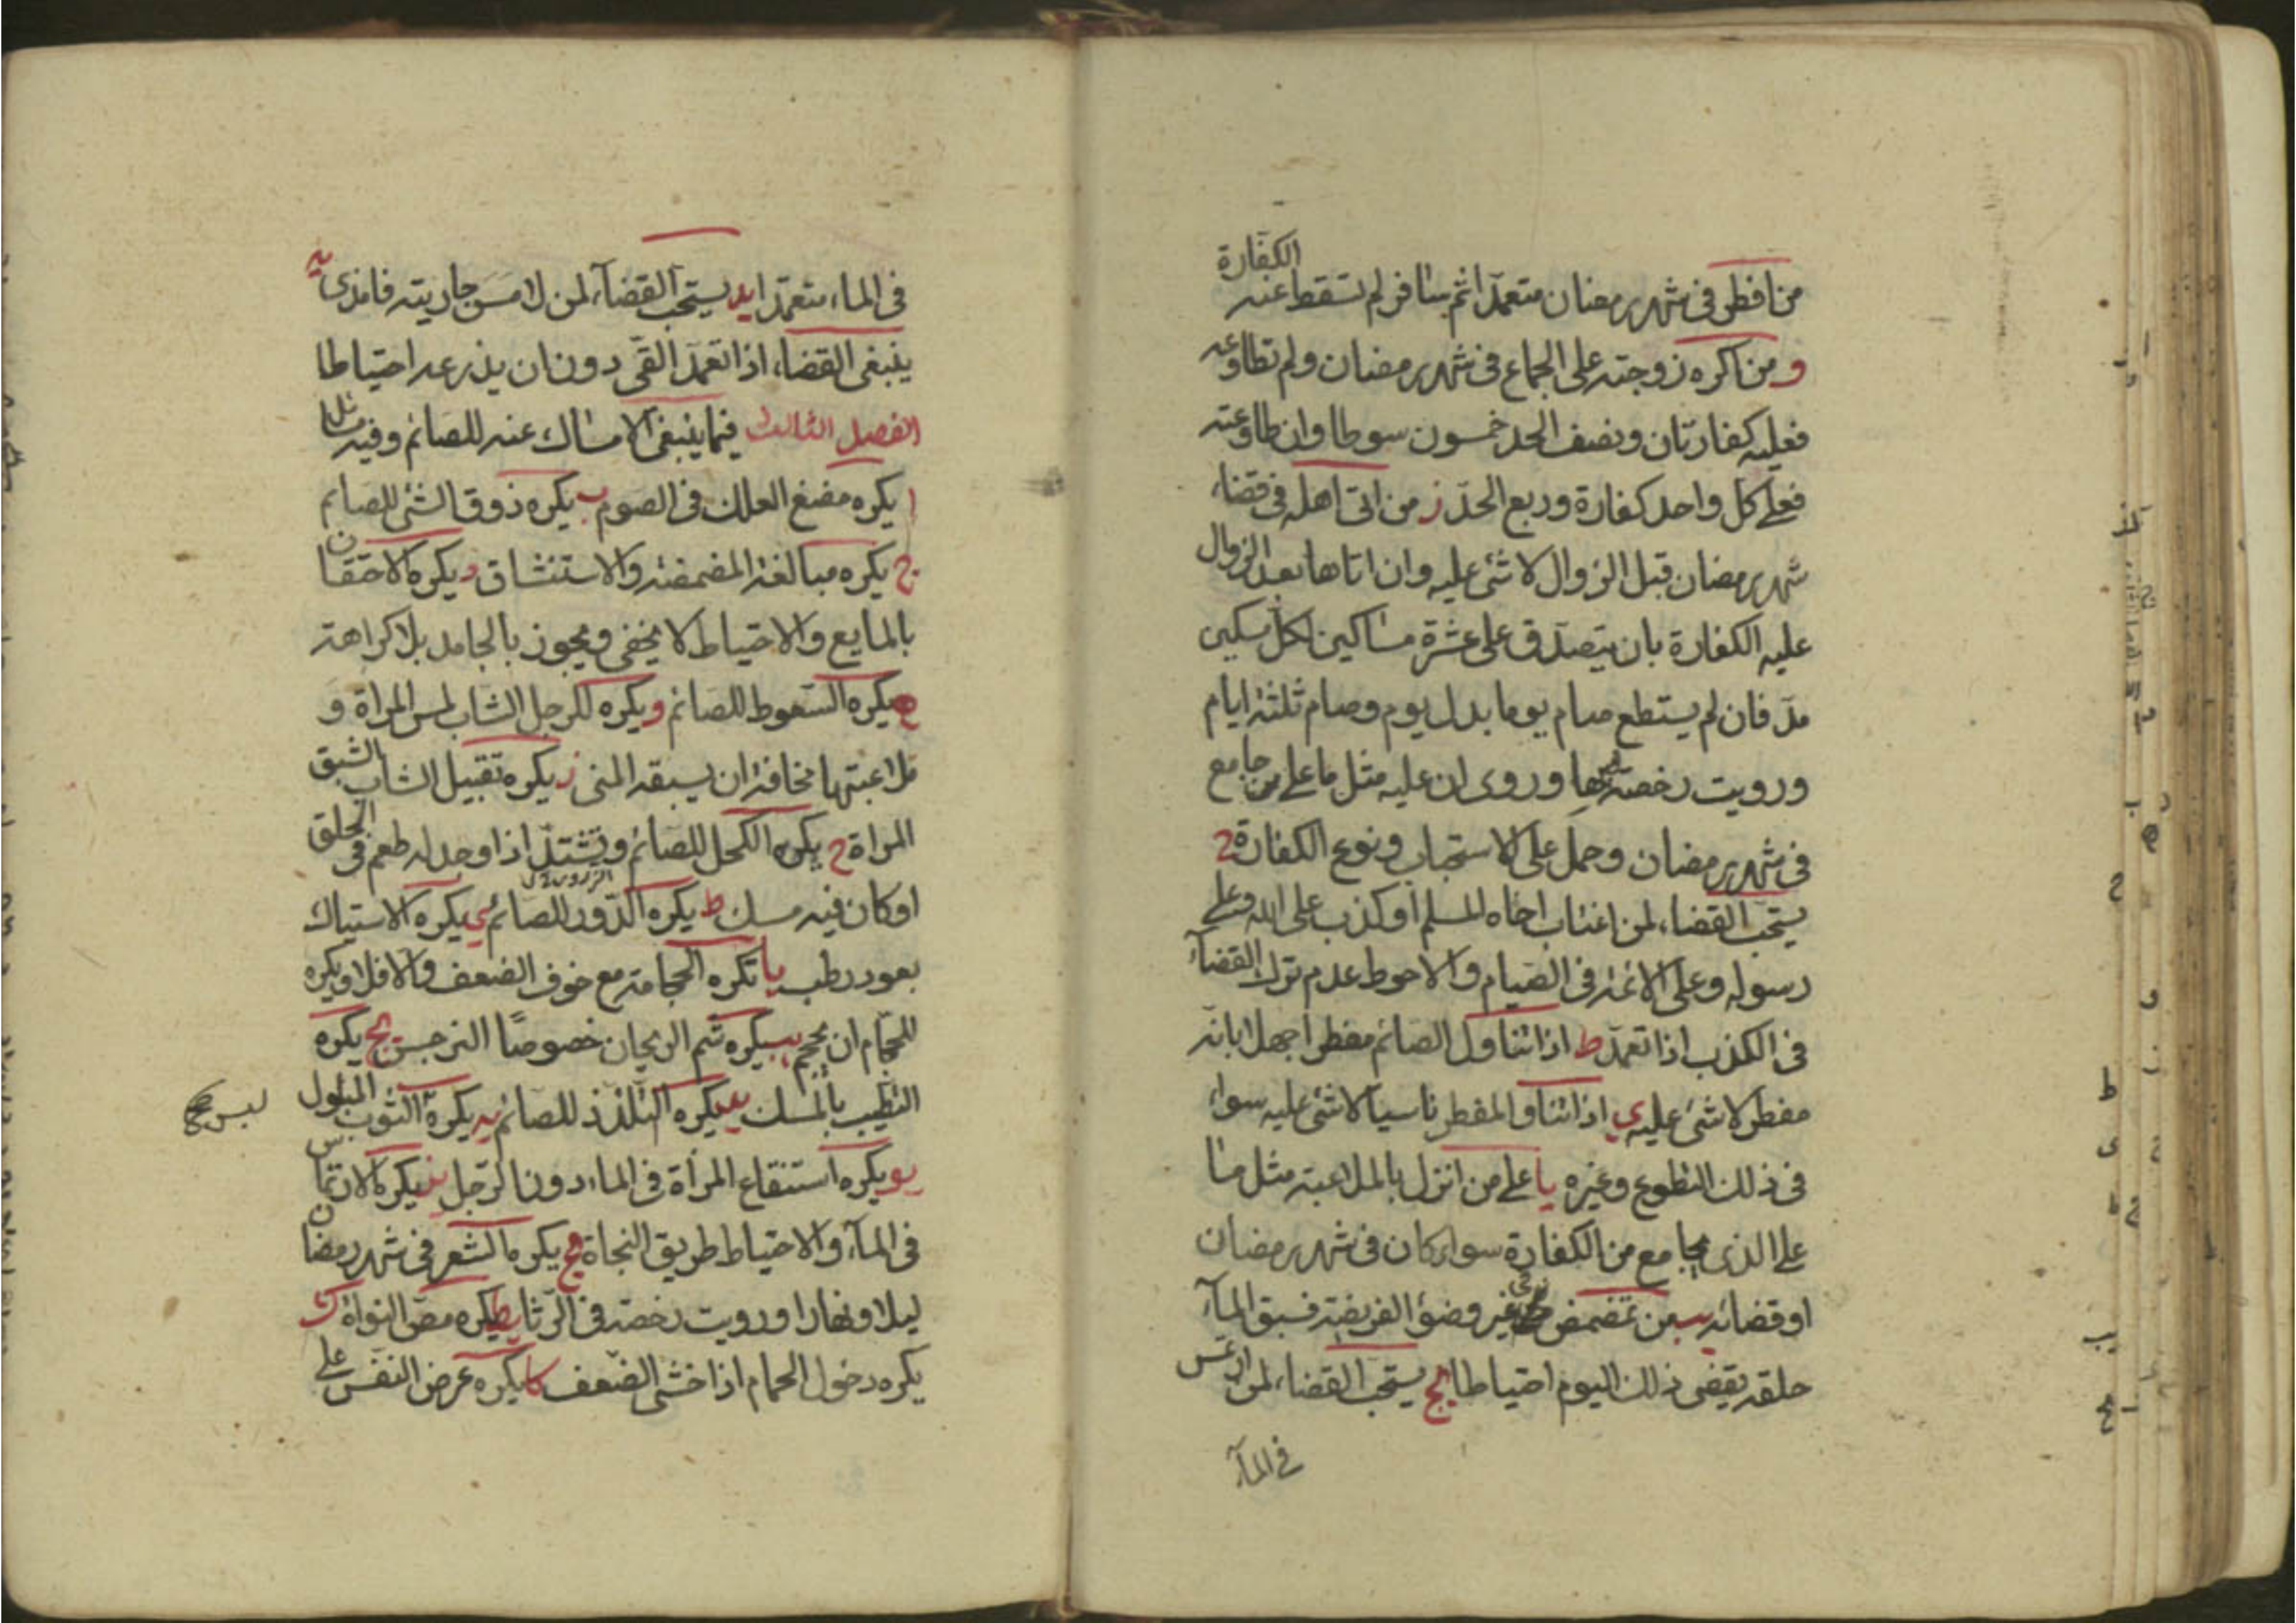 من افطر فى شهر رمضان متعمدا ثم سافر لم تسقط عنه الكفارة
و من اكره زوجته على الجماع فى شهر رمضان ولم تطاوعه
فعليه كفارتان ونصف الحد خمسون سوطا وان طاوعته
فعلى كل واحد كفارة وربع الحد ز من اتى اهله فى قضاء
شهر رمضان قبل الزوال لا شئ عليه وان اتاها بعد الزوال
عليه الكفارة بان يتصدق على عشرة مساكين لكل مسكين
مد فان لم يستطع صام يوما بدل يوم وصام ثلثة ايام
ورويت رخصة وروى ان عليه مثل ما على من جامع
فى شهر رمضان وحمل على الاستحباب ونوع الكفارة ح
يستحب القضاء لمن اغتاب اخاه المسلم او كذب على الله وعلى
رسوله وعلى الائمة فى الصيام والاحوط عدم ترك القضاء
فى الكذب اذا تعمد ط اذا تناول الصائم مفطرا جهلا بانه
مفطر لا شئ عليه ى اذا تناول المفطر ناسيا لا شئ عليه سواء
فى ذلك التطوع وغيره يا على من انزل بالملاعبة مثل ما
على الذى يجامع من الكفارة سواء كان فى شهر رمضان
او قضائه يب من تمضمض فى غير وضوء الفريضة فسبق الماء
حلقه يقضى ذلك اليوم احتياطا يج يستحب القضاء لمن ارتمس
فى الماء
فى الماء متعمدا يد يستحب القضاء لمن لامس جاريته فامذى يه
ينبغى القضاء اذا تعمد القى دون ان يذرعه احتياطا
الفصل الثالث فيما ينبغى الامساك عنه للصائم وفيه مسائل
ا يكره مضغ العلك فى الصوم ب يكره ذوق الشئ للصائم
ج يكره مبالغة المضمضة والاستنشاق د يكره الاحتقان
بالمايع والاحتياط لا يخفى ويجوز بالجامد بلا كراهة
ه يكره السعوط للصائم و يكره للرجل الشاب لمس المراة و
ملاعبتها مخافة ان يسبقه المنى ز يكره تقبيل الشاب الشبق
المراة ح يكره الكحل للصائم وتشتد اذا وجد له طعم فى الحلق
او كان فيه مسك ط يكره الذرور للصائم ى يكره الاستياك
بعود رطب يا تكره الحجامة مع خوف الضعف والا فلا ويكره
للحجام ان يحجم يب يكره شم الريحان خصوصا النرجس يج يكره
التطيب بالمسك يد يكره التلذذ للصائم يه يكره الثوب المبلول
لبس
يو يكره استنقاع المراة فى الماء دون الرجل يز يكره الارتماس
فى الماء والاحتياط طريق النجاة يح يكره الشعر فى شهر رمضان
ليلا ونهارا ورويت رخصة فى الرثا يط يكره مص النواة ك
يكره دخول الحمام اذا خشى الضعف كا يكره عرض النفس على